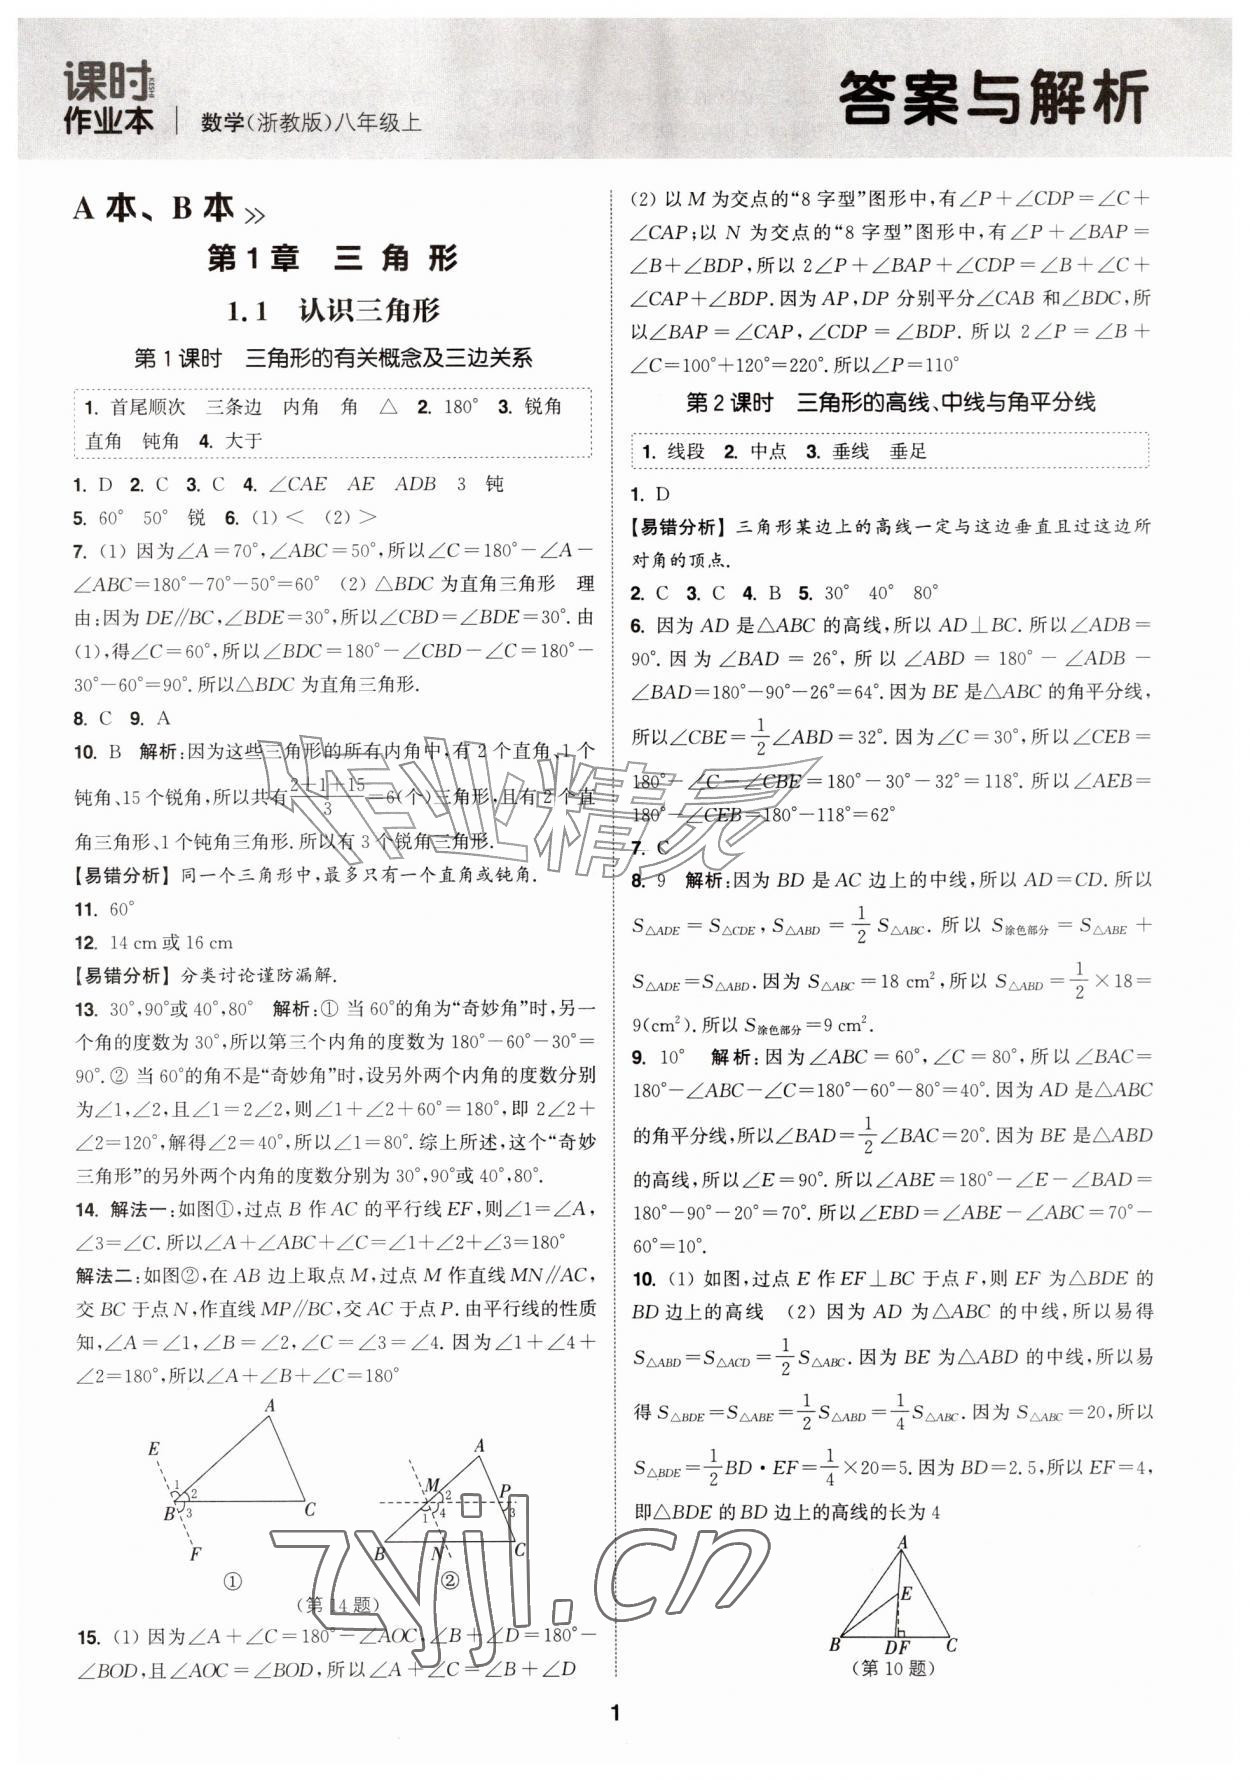 课时
KESHI
作业本
数学(浙教版)八年级上
答案与解析
A 本、B 本
第 1 章 三 角 形
1.1 认识三角形
第 1 课时 三角形的有关概念及三边关系
1. 首尾顺次 三条边 内角 角 △ 2. 180° 3. 锐角
直角 钝角 4. 大于
1. D 2. C 3. C 4. ∠CAE AE ADB 3 钝
5. 60° 50° 锐 6. (1)< (2)>
7. (1) 因为∠A=70°,∠ABC=50°,所以∠C=180°-∠A-
∠ABC=180°-70°-50°=60° (2) △BDC 为直角三角形 理
由:因为 DE∥BC,∠BDE=30°,所以∠CBD=∠BDE=30°. 由
(1),得∠C=60°,所以∠BDC=180°-∠CBD-∠C=180°-
30°-60°=90°. 所以△BDC 为直角三角形.
8. C 9. A
10. B 解析:因为这些三角形的所有内角中,有 2 个直角、1 个
钝角、15 个锐角,所以共有(2+1+15)/3=6(个)三角形,且有 2 个直
角三角形、1 个钝角三角形. 所以有 3 个锐角三角形.
【易错分析】 同一个三角形中,最多只有一个直角或钝角.
11. 60°
12. 14 cm 或 16 cm
【易错分析】 分类讨论谨防漏解.
13. 30°,90°或 40°,80° 解析:① 当 60°的角为“奇妙角”时,另一
个角的度数为 30°,所以第三个内角的度数为 180°-60°-30°=
90°. ② 当 60°的角不是“奇妙角”时,设另外两个内角的度数分别
为∠1,∠2,且∠1=2∠2,则∠1+∠2+60°=180°,即 2∠2+
∠2=120°,解得∠2=40°,所以∠1=80°. 综上所述,这个“奇妙
三角形”的另外两个内角的度数分别为 30°,90°或 40°,80°.
14. 解法一:如图①,过点 B 作 AC 的平行线 EF,则∠1=∠A,
∠3=∠C. 所以∠A+∠ABC+∠C=∠1+∠2+∠3=180°
解法二:如图②,在 AB 边上取点 M,过点 M 作直线 MN∥AC,
交 BC 于点 N,作直线 MP∥BC,交 AC 于点 P. 由平行线的性质
知,∠A=∠1,∠B=∠2,∠C=∠3=∠4. 因为∠1+∠4+
∠2=180°,所以∠A+∠B+∠C=180°
A
E
1
2
B 3
C
F
①
A
M
2
P
1 4
3
B
N
C
②
(第 14 题)
15. (1) 因为∠A+∠C=180°-∠AOC,∠B+∠D=180°-
∠BOD,且∠AOC=∠BOD,所以∠A+∠C=∠B+∠D
(2) 以 M 为交点的“8 字型”图形中,有∠P+∠CDP=∠C+
∠CAP;以 N 为交点的“8 字型”图形中,有∠P+∠BAP=
∠B+∠BDP,所以 2∠P+∠BAP+∠CDP=∠B+∠C+
∠CAP+∠BDP. 因为 AP,DP 分别平分∠CAB 和∠BDC,所
以∠BAP=∠CAP,∠CDP=∠BDP. 所以 2∠P=∠B+
∠C=100°+120°=220°. 所以∠P=110°
第 2 课时 三角形的高线、中线与角平分线
1. 线段 2. 中点 3. 垂线 垂足
1. D
【易错分析】 三角形某边上的高线一定与这边垂直且过这边所
对角的顶点.
2. C 3. C 4. B 5. 30° 40° 80°
6. 因为 AD 是△ABC 的高线,所以 AD⊥BC. 所以∠ADB=
90°. 因为∠BAD=26°,所以∠ABD=180°-∠ADB-
∠BAD=180°-90°-26°=64°. 因为 BE 是△ABC 的角平分线,
所以∠CBE=1/2∠ABD=32°. 因为∠C=30°,所以∠CEB=
180°-∠C-∠CBE=180°-30°-32°=118°. 所以∠AEB=
180°-∠CEB=180°-118°=62°
7. C
8. 9 解析:因为 BD 是 AC 边上的中线,所以 AD=CD. 所以
S△ADE=S△CDE,S△ABD=1/2 S△ABC. 所以 S涂色部分=S△ABE+
S△ADE=S△ABD. 因为 S△ABC=18 cm²,所以 S△ABD=1/2×18=
9(cm²). 所以 S涂色部分=9 cm².
9. 10° 解析:因为∠ABC=60°,∠C=80°,所以∠BAC=
180°-∠ABC-∠C=180°-60°-80°=40°. 因为 AD 是△ABC
的角平分线,所以∠BAD=1/2∠BAC=20°. 因为 BE 是△ABD
的高线,所以∠E=90°. 所以∠ABE=180°-∠E-∠BAD=
180°-90°-20°=70°. 所以∠EBD=∠ABE-∠ABC=70°-
60°=10°.
10. (1) 如图,过点 E 作 EF⊥BC 于点 F,则 EF 为△BDE 的
BD 边上的高线 (2) 因为 AD 为△ABC 的中线,所以易得
S△ABD=S△ACD=1/2 S△ABC. 因为 BE 为△ABD 的中线,所以易
得 S△BDE=S△ABE=1/2 S△ABD=1/4 S△ABC. 因为 S△ABC=20,所以
S△BDE=1/2 BD·EF=1/4×20=5. 因为 BD=2.5,所以 EF=4,
即△BDE 的 BD 边上的高线的长为 4
A
E
B
DF
C
(第 10 题)
1
作业精灵
zyjl.cn